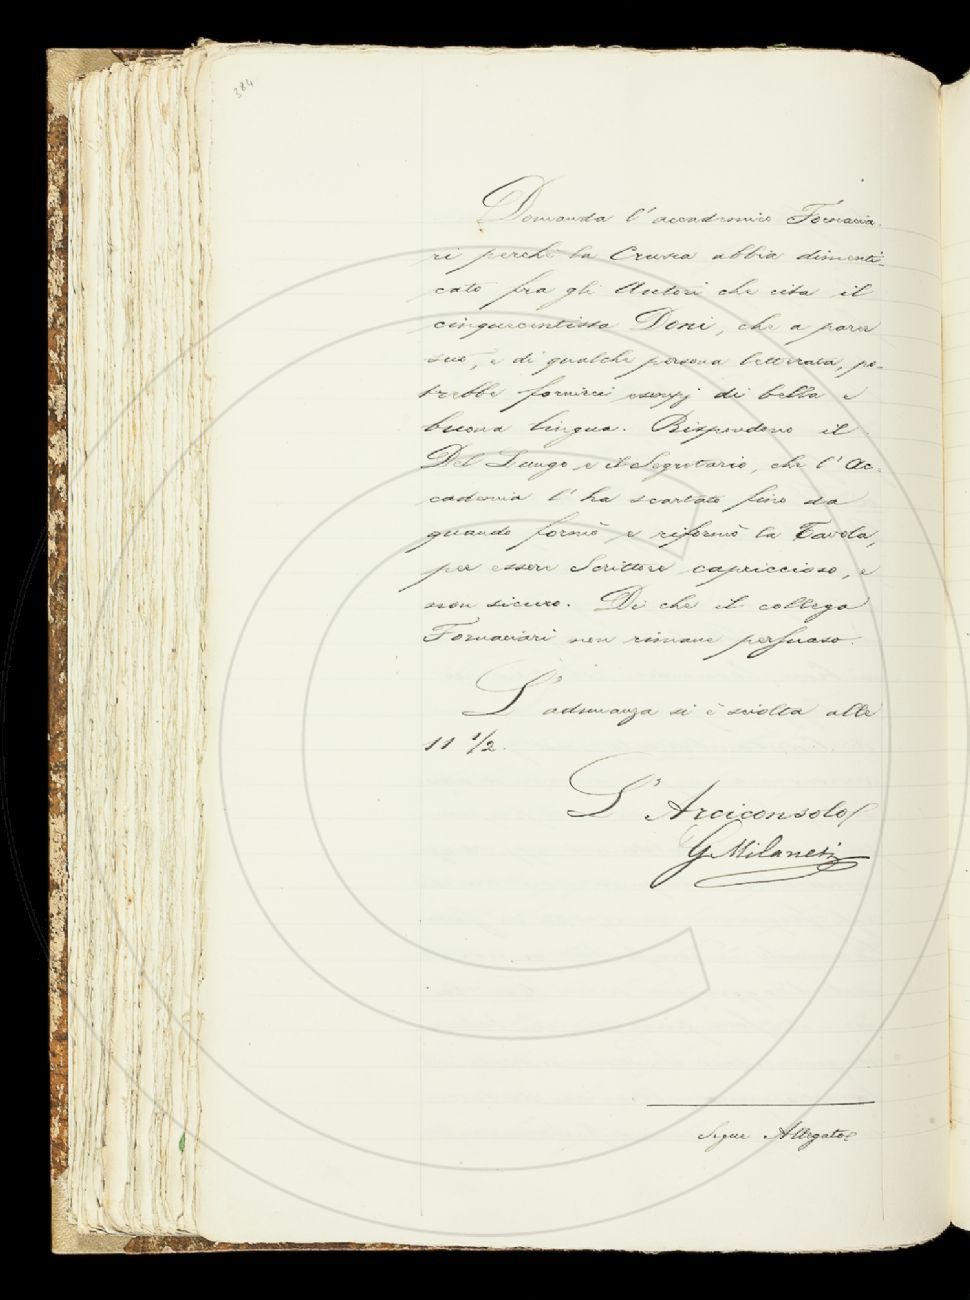 384
Domanda l'accademico Fornacia-
ri perchè la Crusca abbia dimenti-
cato fra gli Autori che cita il
cinquecentista Doni, che a parer
suo, e di qualche persona letterata, po-
trebbe fornirci esempj di bella e
buona lingua. Rispondono il
Del Lungo e il Segretario, che l'Ac-
cademia l'ha scartato fino da
quando formò e riformò la Tavola,
per essere Scrittore capriccioso, e
non sicuro. Di che il collega
Fornaciari non rimane persuaso.
L'adunanza si è sciolta alle
11 1/2.
L'Arciconsolo
G. Milanesi
Segue Allegato